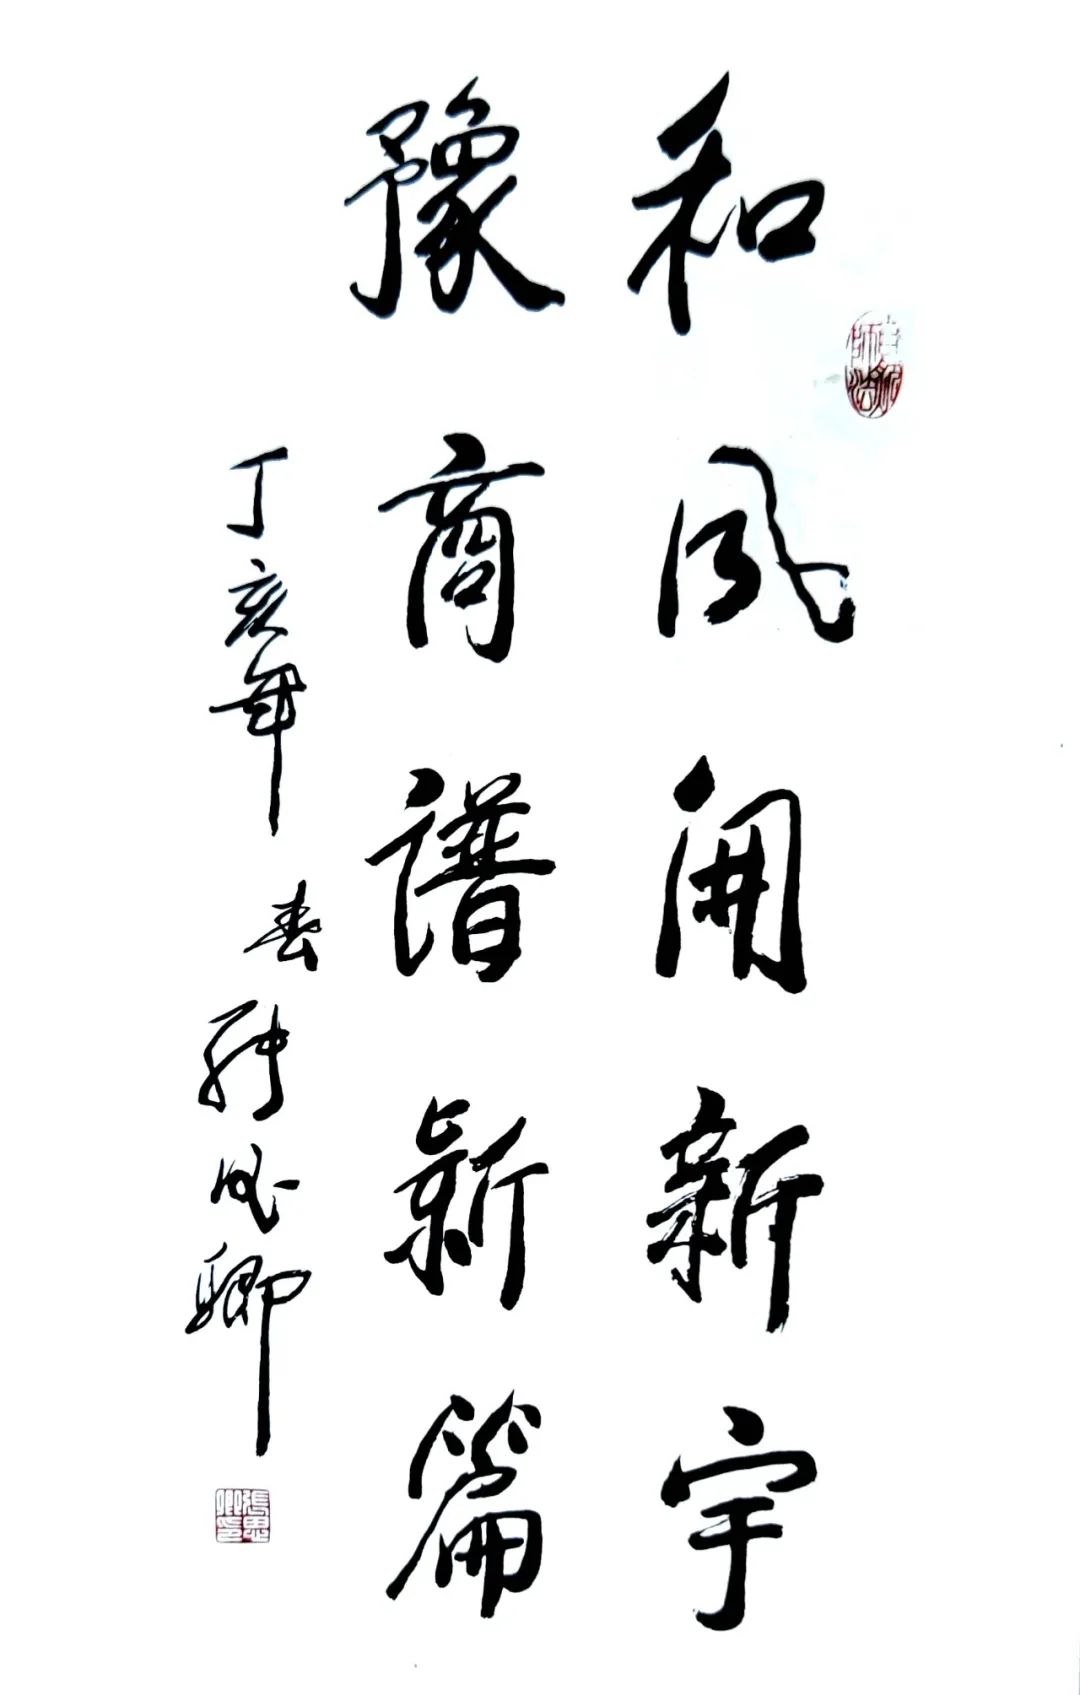 和风開新宇
豫商譜新篇
丁亥年春张思卿
師法自然
張思卿印